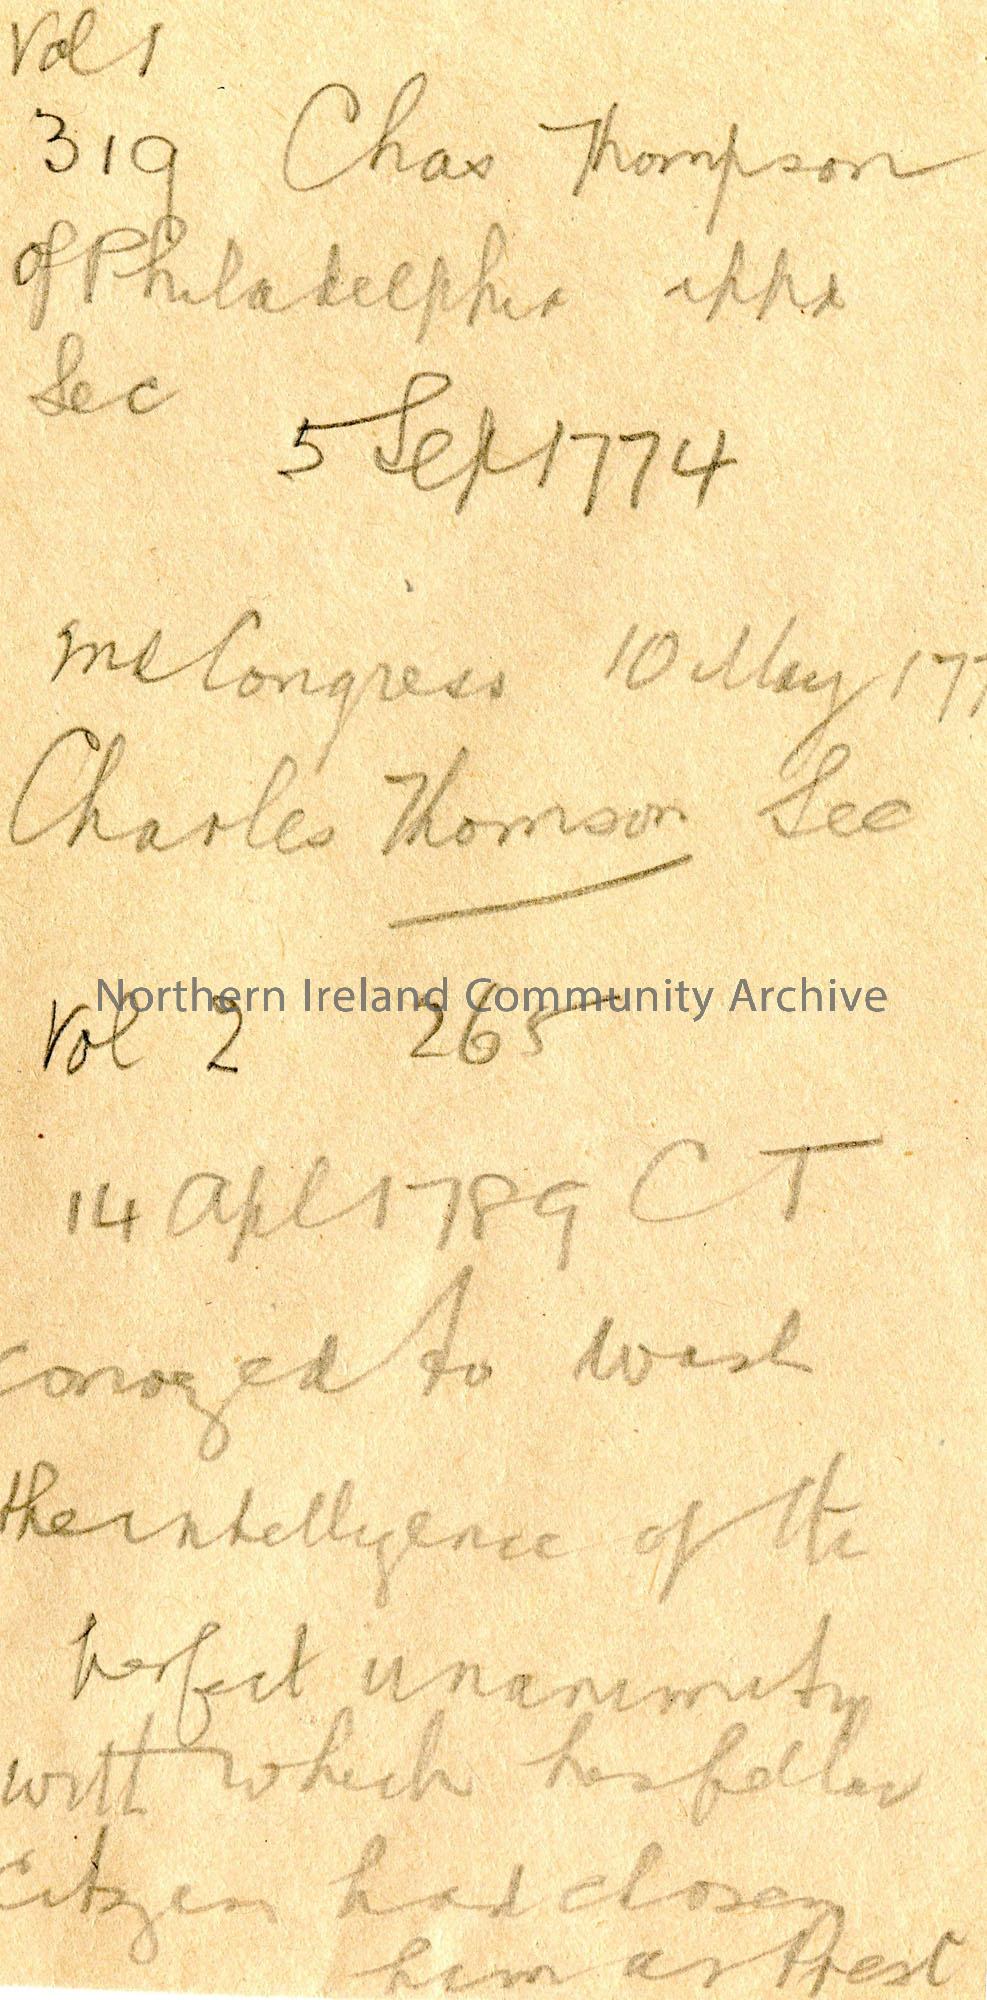 Vol 1
319 Chas Thompson
of Philadelphia appd
Sec
5 Sep 1774
Congress 10 May 177
Charles Thomson Sec
Northern Ireland Community Archive
Vol 2 265
14 Apl 1789 C T
to Wash
the intelligence of the
perfect unanimity
with which his fellow
Citizen had chosen
him as Prest